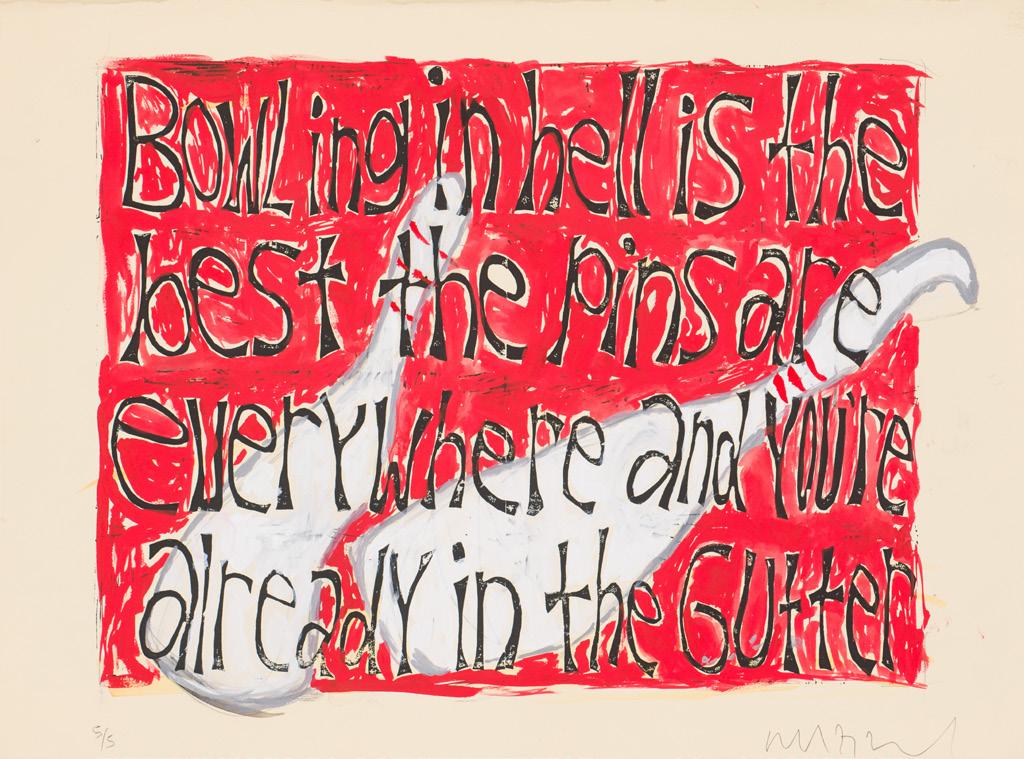 BOWLing in hell is the
best the pins are
everywhere and you're
already in the Gutter
5/5